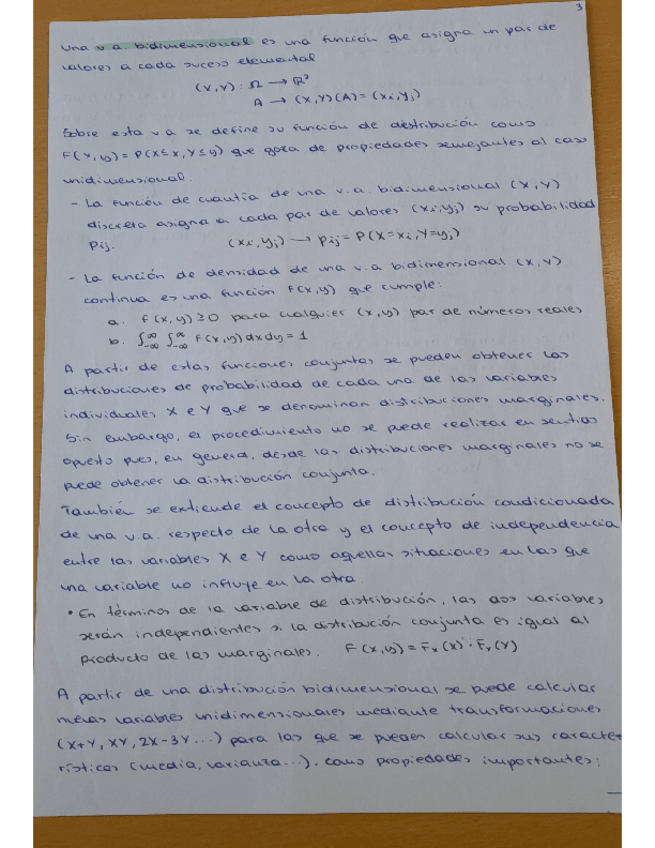 3
Una v.a. bidimensional es una función que asigna un par de
valores a cada suceso elemental
(X,Y): Ω → ℝ²
A → (X,Y)(A) = (xi, yj)
Sobre esta v.a se define su función de distribución como
F(x,y) = P(X≤x, Y≤y) que goza de propiedades semejantes al caso
unidimensional.
- La función de cuantía de una v.a. bidimensional (X,Y)
discreta asigna a cada par de valores (xi, yj) su probabilidad
Pij. (xi, yj) → Pij = P(X=xi, Y=yj)
- La función de densidad de una v.a bidimensional (X,Y)
continua es una función f(x,y) que cumple:
a. f(x,y) ≥ 0 para cualquier (x,y) par de números reales
b. ∫-∞^∞ ∫-∞^∞ f(x,y) dx dy = 1
A partir de estas funciones conjuntas se pueden obtener las
distribuciones de probabilidad de cada una de las variables
individuales X e Y que se denominan distribuciones marginales.
Sin embargo, el procedimiento no se puede realizar en sentido
opuesto pues, en general, desde las distribuciones marginales no se
puede obtener la distribución conjunta.
También se extiende el concepto de distribución condicionada
de una v.a. respecto de la otra y el concepto de independencia
entre las variables X e Y como aquellas situaciones en las que
una variable no influye en la otra.
• En términos de la variable de distribución, las dos variables
serán independientes si la distribución conjunta es igual al
producto de las marginales. F(x,y) = Fx(x) · Fy(Y)
A partir de una distribución bidimensional se puede calcular
nuevas variables unidimensionales mediante transformaciones
(X+Y, XY, 2X-3Y...) para las que se pueden calcular sus caracte-
rísticas (media, varianza...). como propiedades importantes: